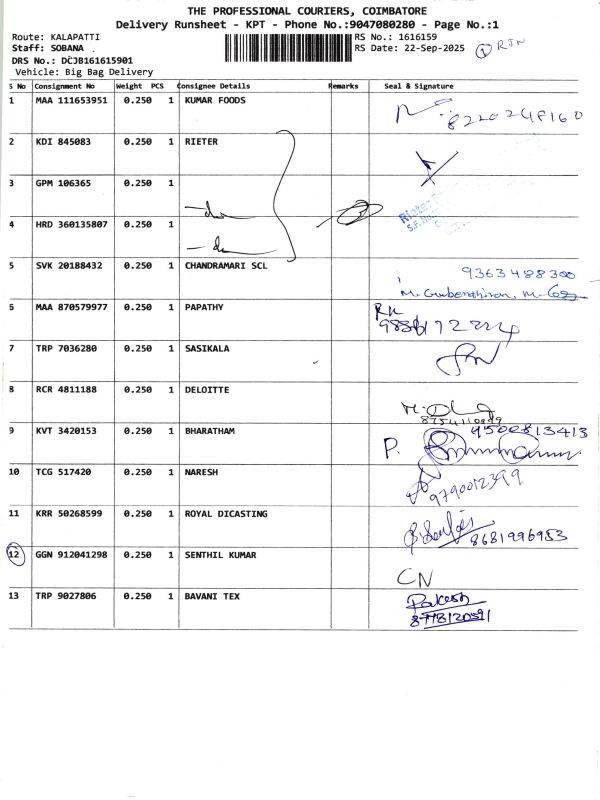 THE PROFESSIONAL COURIERS, COIMBATORE
Delivery Runsheet - KPT - Phone No.:9047080280 - Page No.:1
Route: KALAPATTI
Staff: SOBANA
DRS No.: DCJB161615901
Vehicle: Big Bag Delivery
RS No.: 1616159
RS Date: 22-Sep-2025
1 RJN
S No Consignment No Weight PCS Consignee Details Remarks Seal & Signature
1 MAA 111653951 0.250 1 KUMAR FOODS
8220248160
2 KDI 845083 0.250 1 RIETER
3 GPM 106365 0.250 1
Rieter
4 HRD 360135807 0.250 1
5 SVK 20188432 0.250 1 CHANDRAMARI SCL
9363488300
6 MAA 870579977 0.250 1 PAPATHY
7 TRP 7036280 0.250 1 SASIKALA
8 RCR 4811188 0.250 1 DELOITTE
9 KVT 3420153 0.250 1 BHARATHAM 9500813413
P.
10 TCG 517420 0.250 1 NARESH
9790012399
11 KRR 50268599 0.250 1 ROYAL DICASTING
8681996953
12 GGN 912041298 0.250 1 SENTHIL KUMAR
CN
13 TRP 9027806 0.250 1 BAVANI TEX
Rakesh